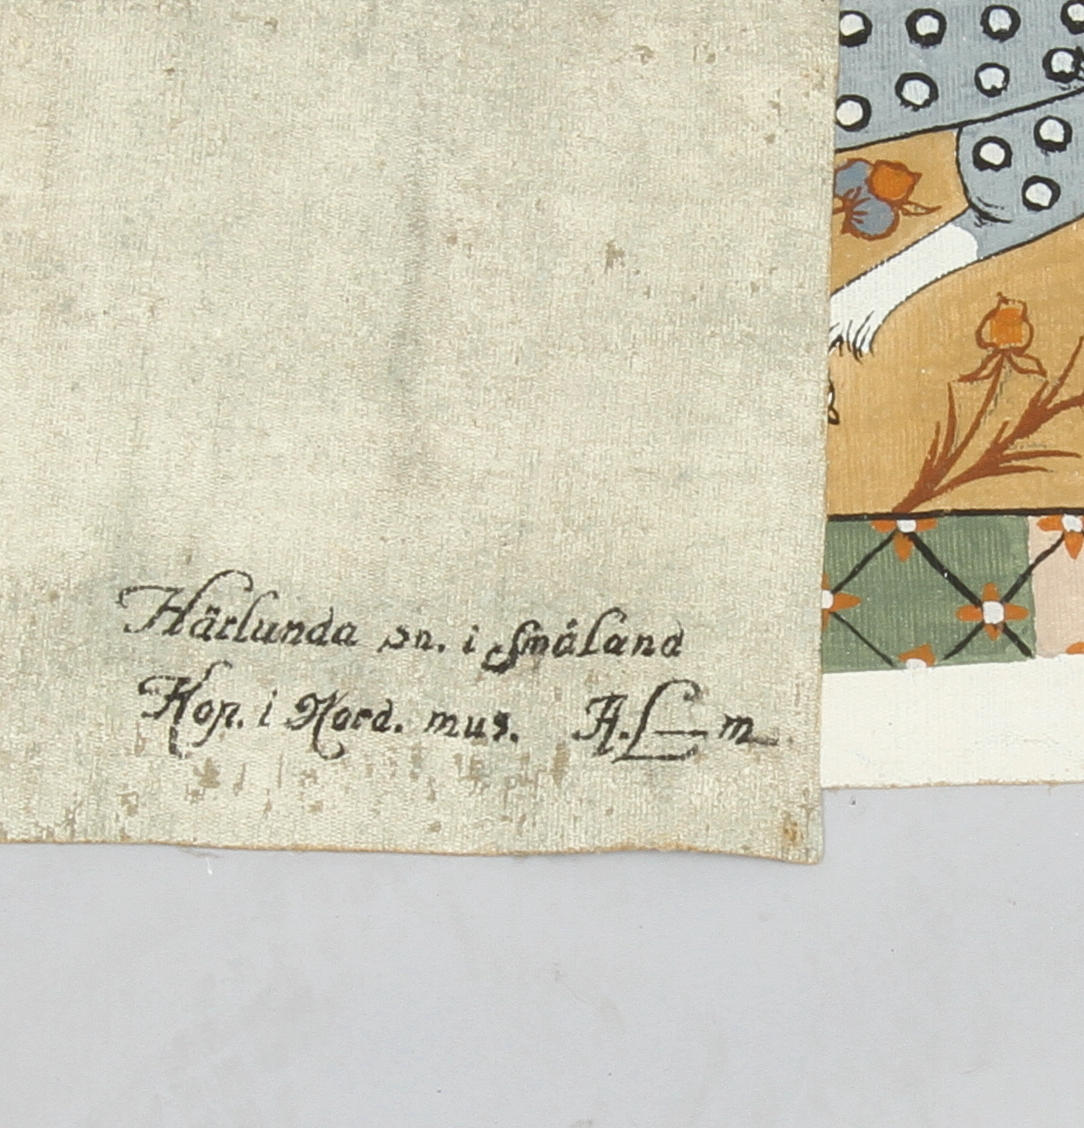 Härlunda sn. i Småland
Kop. i Nord. mus. A.L—m